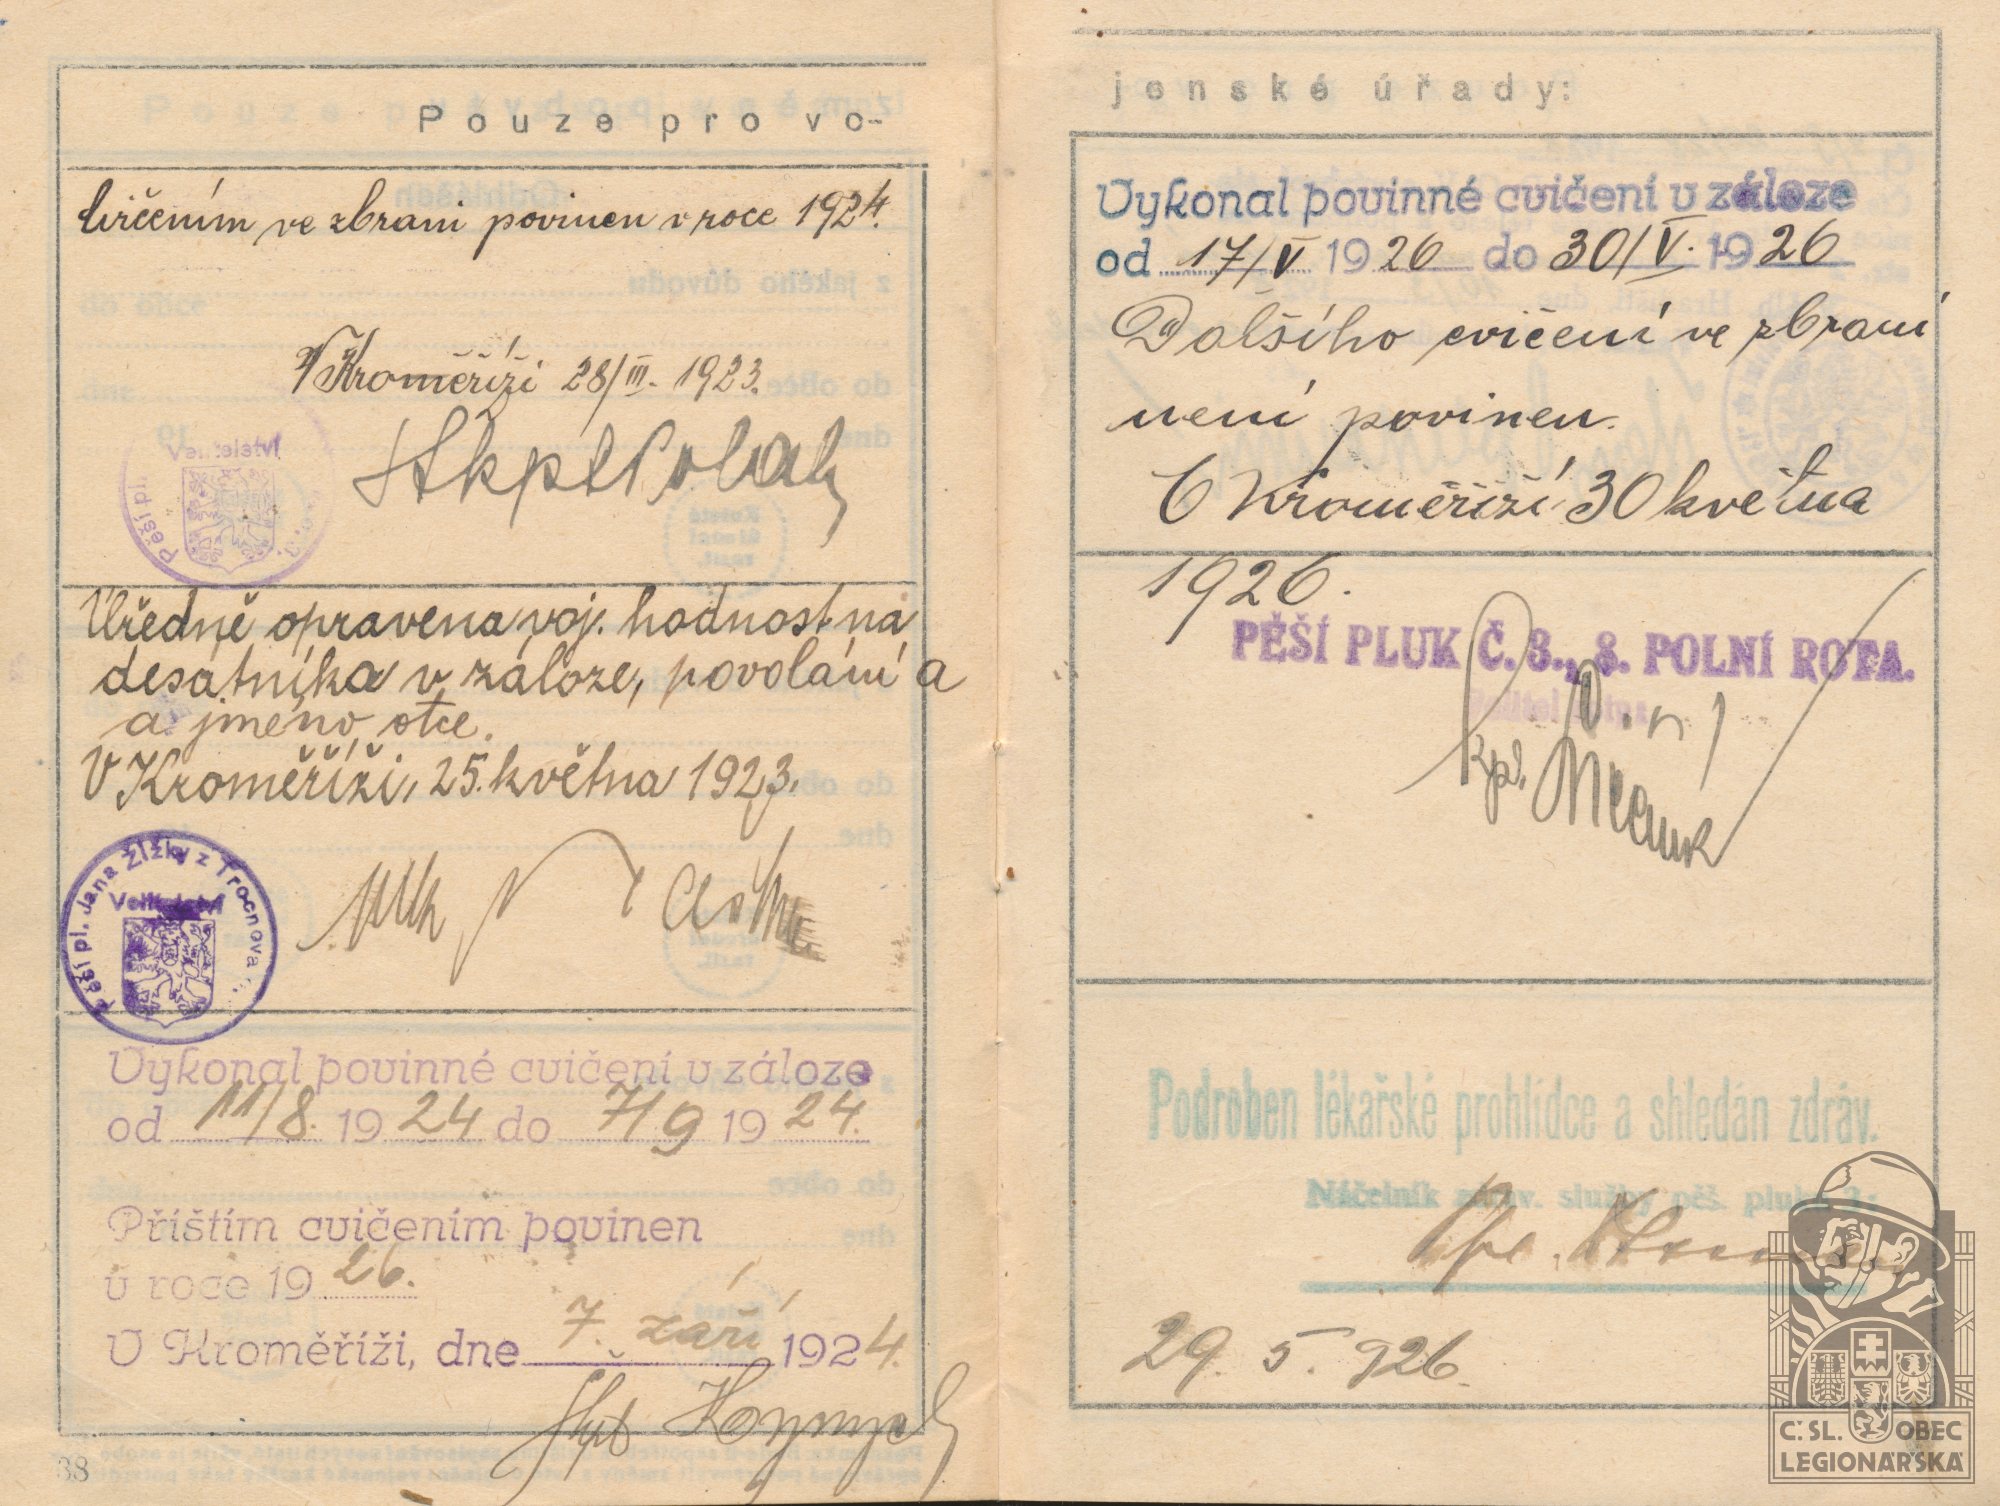 Pouze pro vo-
Cvičením ve zbrani povinen v roce 1924.
V Kroměříži 28/III. 1923.
Velitelství
Pěší pl.
Úředně opravena voj. hodnost na
desátníka v záloze, povolání a
a jméno otce.
V Kroměříži, 25. května 1923.
Pěší pl. Jana Žižky z Trocnova
Velitelství
Vykonal povinné cvičení v záloze
od 11/8. 1924 do 7/9 1924.
Příštím cvičením povinen
v roce 1926.
V Kroměříži, dne 7. září 1924.
38
jenské úřady:
Vykonal povinné cvičení v záloze
od 17/V 1926 do 30/V. 1926
Dalšího cvičení ve zbrani
není povinen.
V Kroměříži 30 května
1926.
PĚŠÍ PLUK Č. 3., 8. POLNÍ ROTA.
kpt.
Podroben lékařské prohlídce a shledán zdráv.
Náčelník zdrav. služby pěš. pluku 3.
29. 5. 926.
Č. SL. OBEC
LEGIONÁŘSKÁ